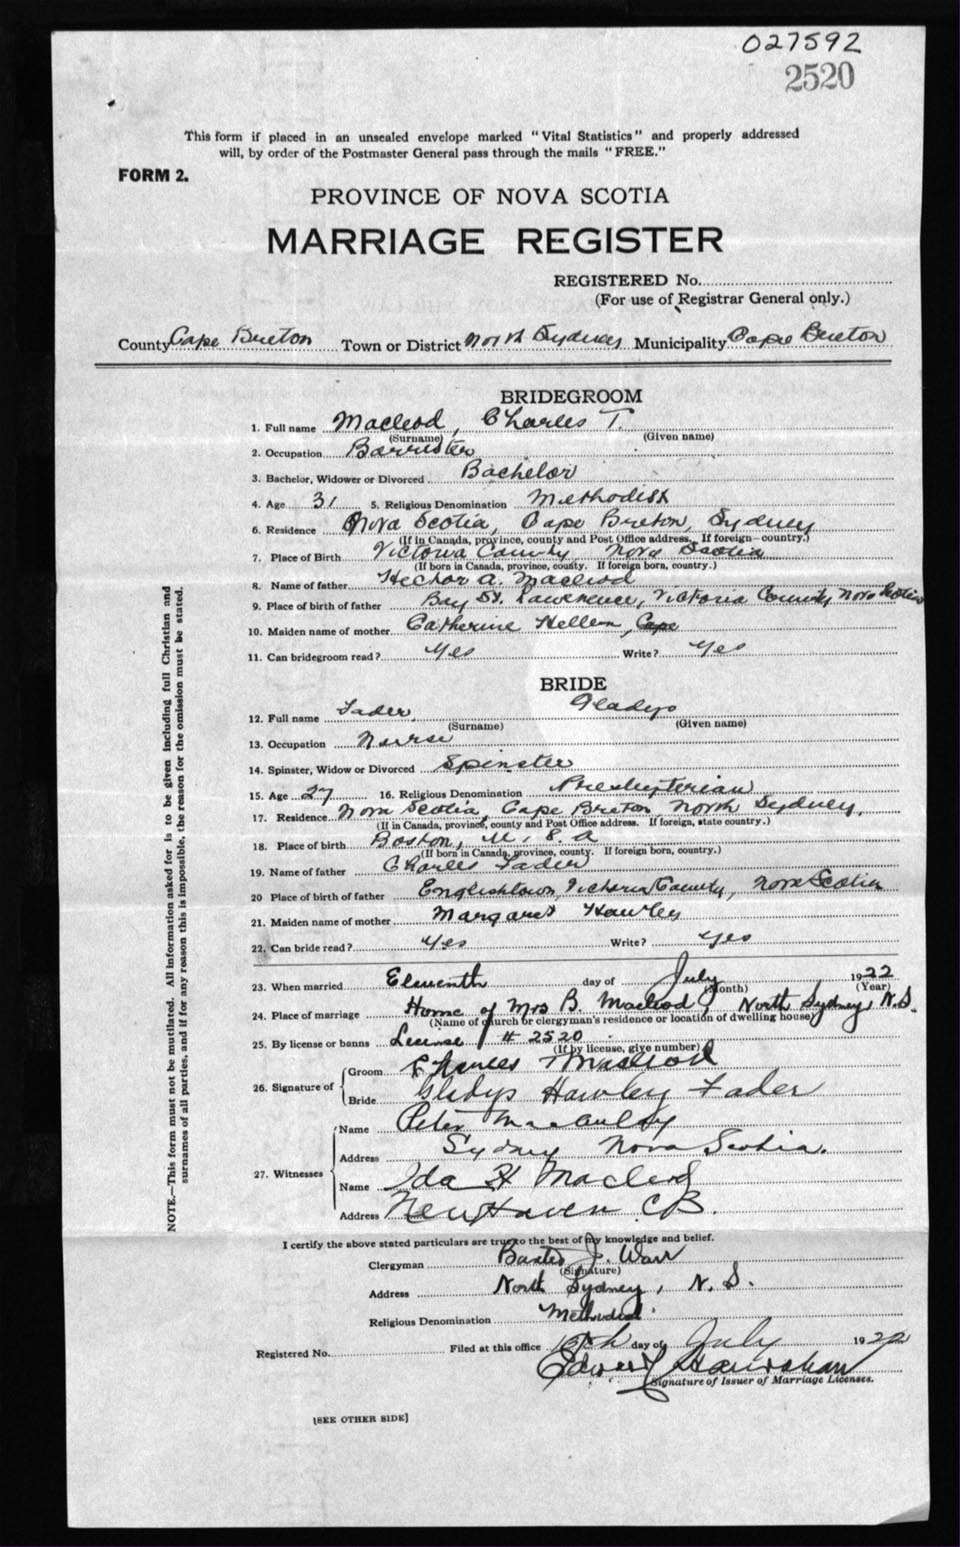 027592
2520
This form if placed in an unsealed envelope marked "Vital Statistics" and properly addressed
will, by order of the Postmaster General pass through the mails "FREE."
FORM 2.
PROVINCE OF NOVA SCOTIA
MARRIAGE REGISTER
REGISTERED No.
(For use of Registrar General only.)
County Cape Breton Town or District North Sydney Municipality Cape Breton
BRIDEGROOM
1. Full name Macleod, Charles T.
(Surname) (Given name)
2. Occupation Barrister
3. Bachelor, Widower or Divorced Bachelor
4. Age 31 5. Religious Denomination Methodist
6. Residence Nova Scotia, Cape Breton, Sydney
(If in Canada, province, county and Post Office address. If foreign—country.)
7. Place of Birth Victoria County, Nova Scotia
(If born in Canada, province, county. If foreign born, country.)
8. Name of father Hector A. Macleod
9. Place of birth of father Bay St. Lawrence, Victoria County Nova Scotia
10. Maiden name of mother Catherine Hellen,
11. Can bridegroom read? Yes Write? Yes
BRIDE
12. Full name Fader, Gladys
(Surname) (Given name)
13. Occupation Nurse
14. Spinster, Widow or Divorced Spinster
15. Age 27 16. Religious Denomination Presbyterian
17. Residence Nova Scotia, Cape Breton, North Sydney,
(If in Canada, province, county and Post Office address. If foreign, state country.)
18. Place of birth Boston, U. S. A
(If born in Canada, province, county. If foreign born, country.)
19. Name of father Charles Fader
20 Place of birth of father Englishtown, Victoria County, Nova Scotia
21. Maiden name of mother Margaret Hawley
22. Can bride read? Yes Write? Yes
23. When married Eleventh day of July 1922
(Month) (Year)
24. Place of marriage Home of Mrs B. Macleod, North Sydney, N.S.
(Name of church or clergyman's residence or location of dwelling house)
25. By license or banns License # 2520
(If by license, give number)
26. Signature of
Groom Charles T Macleod
Bride Gladys Hawley Fader
27. Witnesses
Name Peter Macaulay
Address Sydney Nova Scotia.
Name Ida H Macleod
Address New Haven C.B.
I certify the above stated particulars are true to the best of my knowledge and belief.
Clergyman Baxter J. Warr
(Signature)
Address North Sydney, N. S.
Religious Denomination Methodist.
Registered No. Filed at this office day of July 1922
Signature of Issuer of Marriage Licenses.
[SEE OTHER SIDE]
NOTE.—This form must not be mutilated. All information asked for is to be given including full Christian and
surnames of all parties, and if for any reason this is impossible, the reason for the omission must be stated.